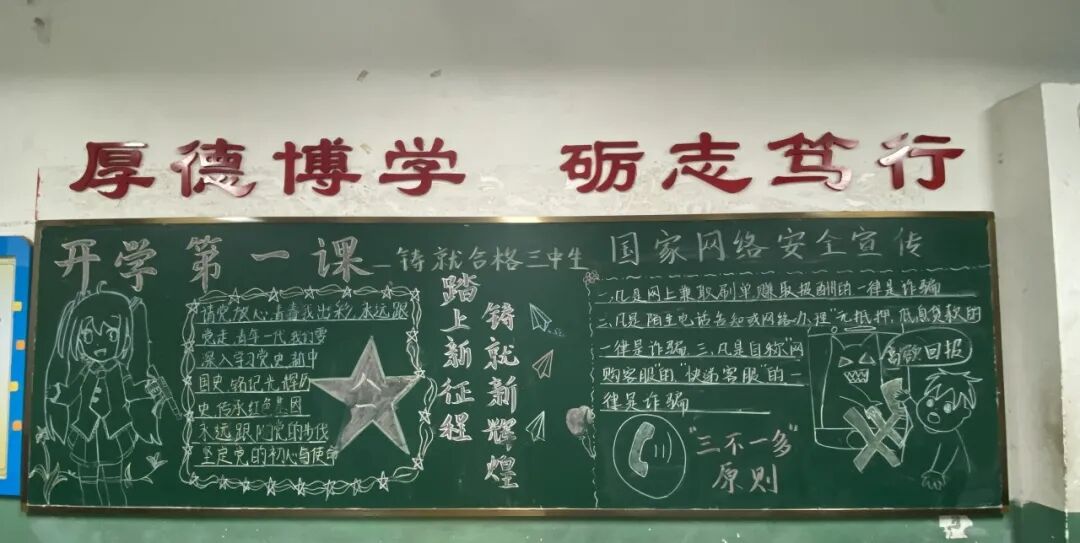 厚德博学 砺志笃行
开学第一课
—铸就合格三中生
请党放心,青春我出彩,永远跟
党走,青年一代,我们要
深入学习党史,新中
国史,铭记光辉历
史,传承红色基因
永远跟随党的步伐
坚定党的初心与使命
八一
踏上新征程
铸就新辉煌
国家网络安全宣传
一、凡是网上兼职刷单,赚取报酬的一律是诈骗
二、凡是陌生电话告知或网络办理"无抵押,低息贷款的
一律是诈骗 三、凡是自称"网
购客服"的"快递客服"的一
律是诈骗
"三不一多"
原则
高额回报